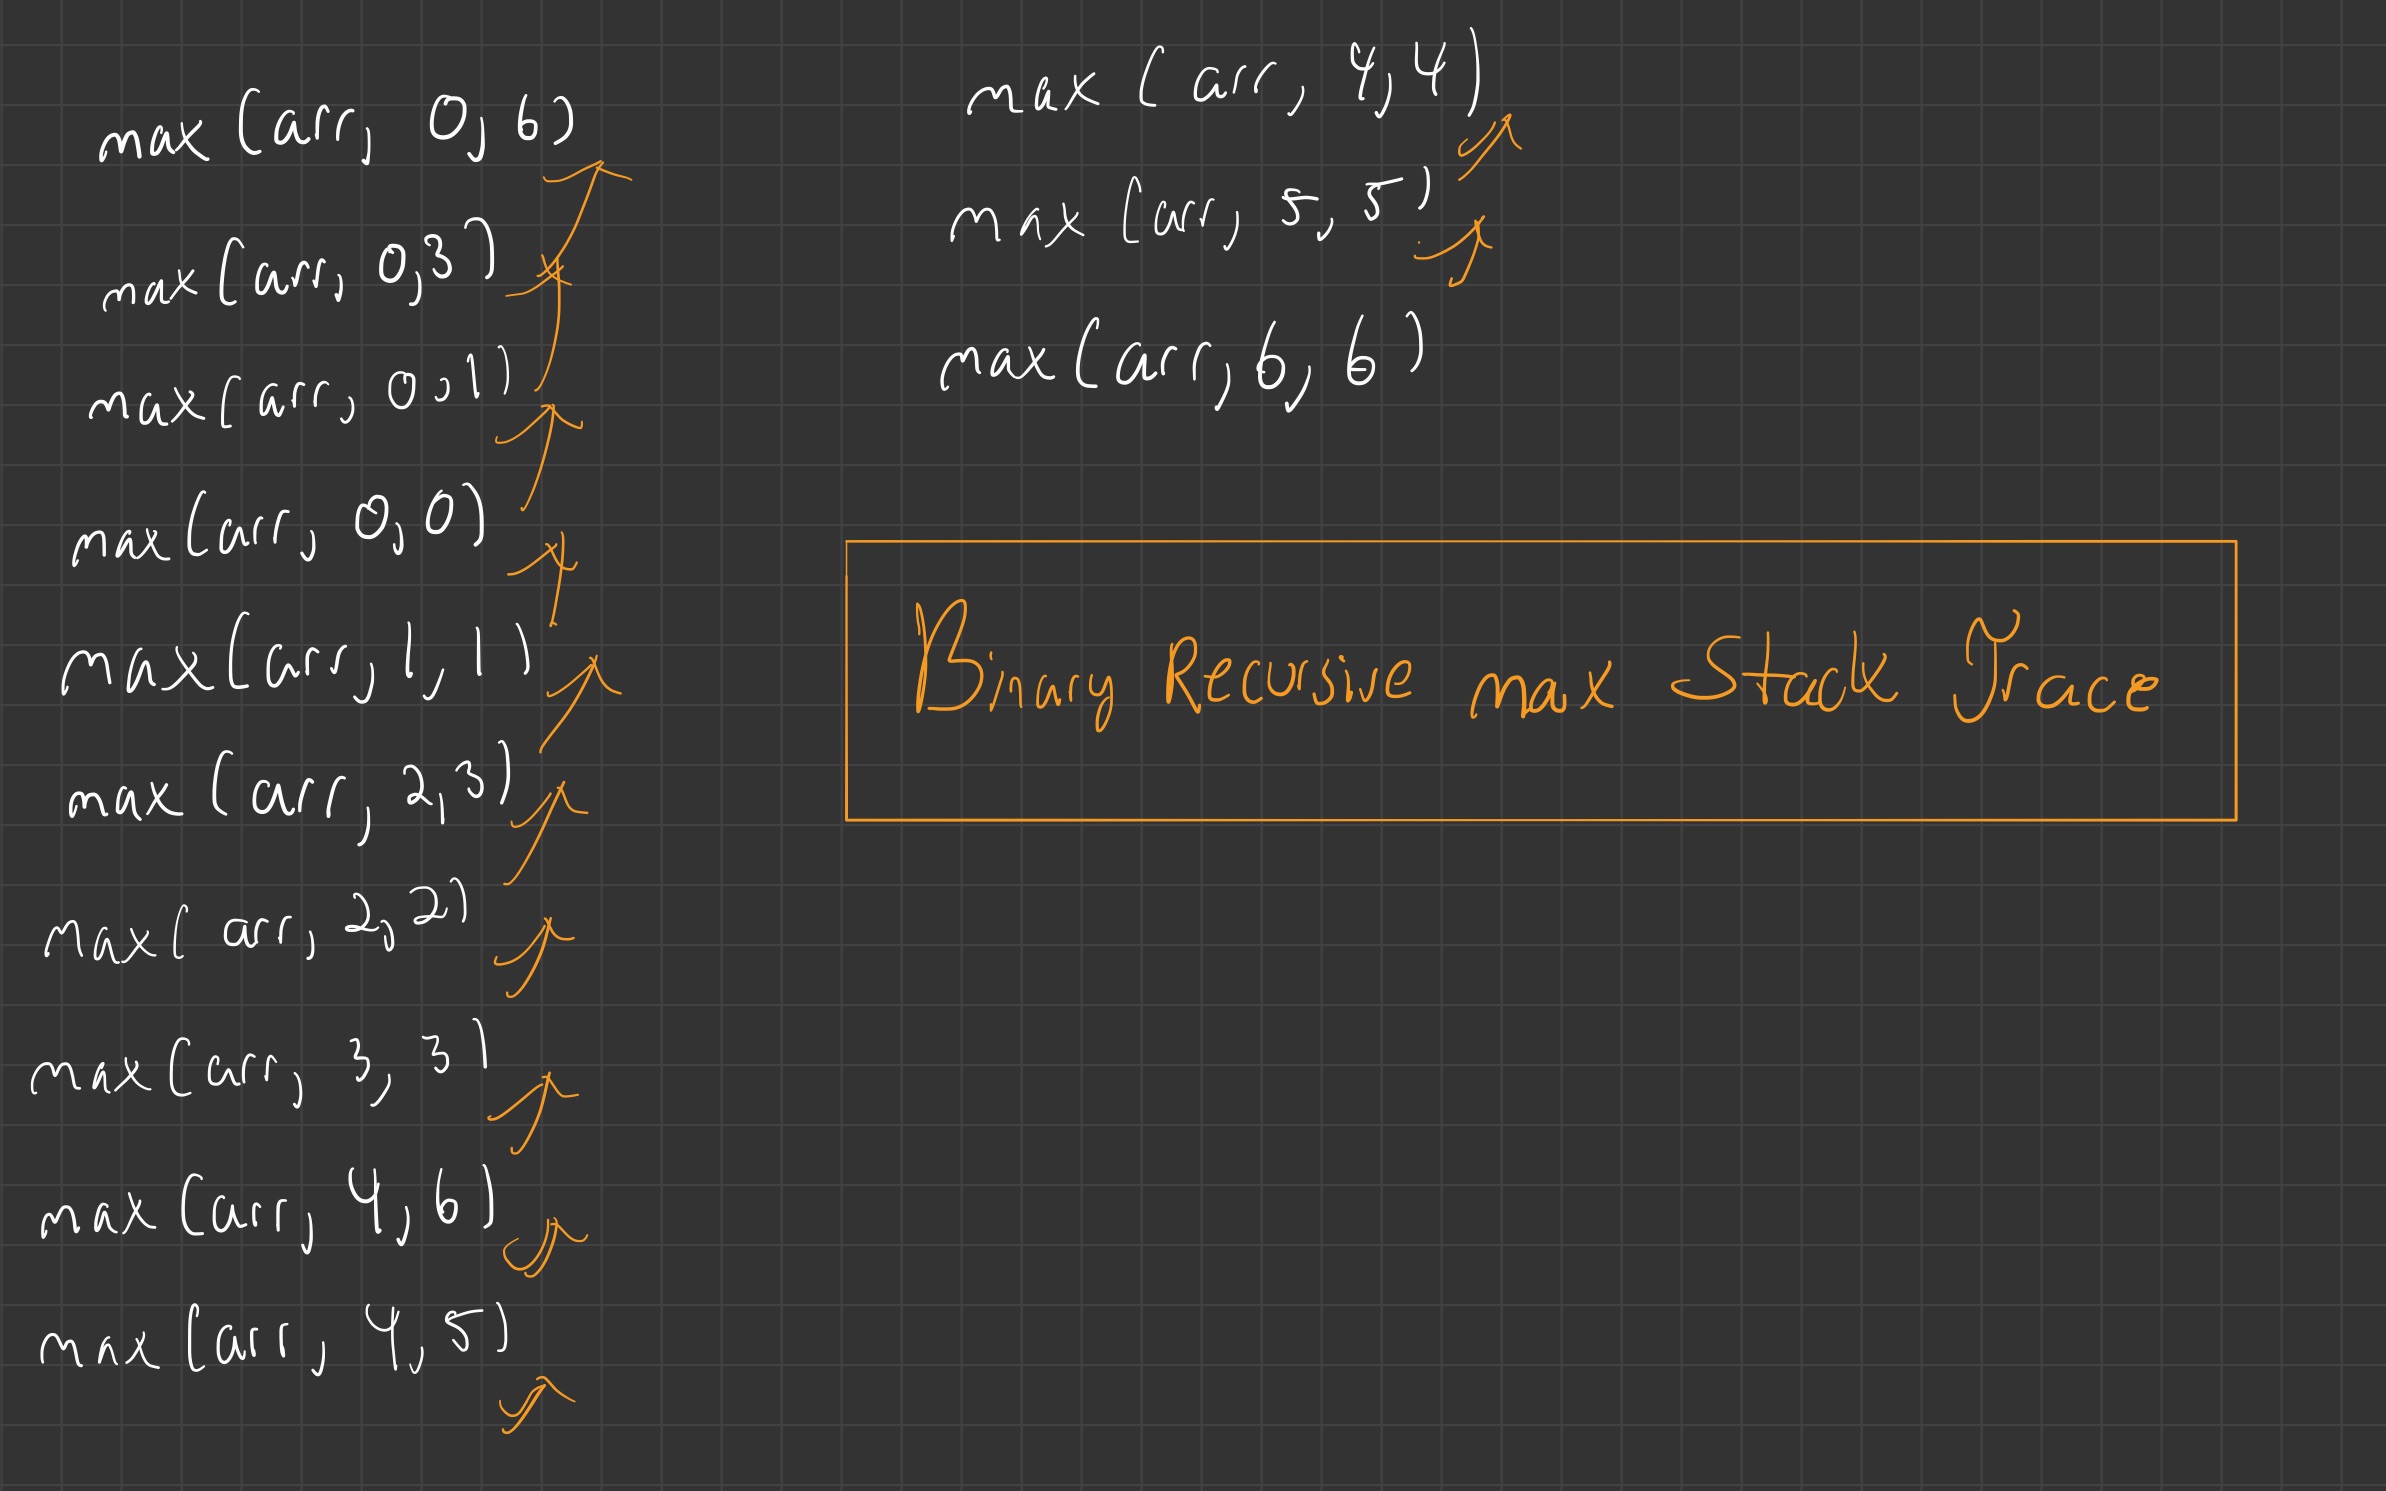 max(arr, 0,6)
max(arr, 0,3)
max(arr, 0,1)
max(arr, 0,0)
max(arr, 1,1)
max(arr, 2,3)
max(arr, 2,2)
max(arr, 3,3)
max(arr, 4,6)
max(arr, 4,5)
max(arr, 4,4)
max(arr, 5,5)
max(arr, 6,6)
Binary Recursive max Stack Trace